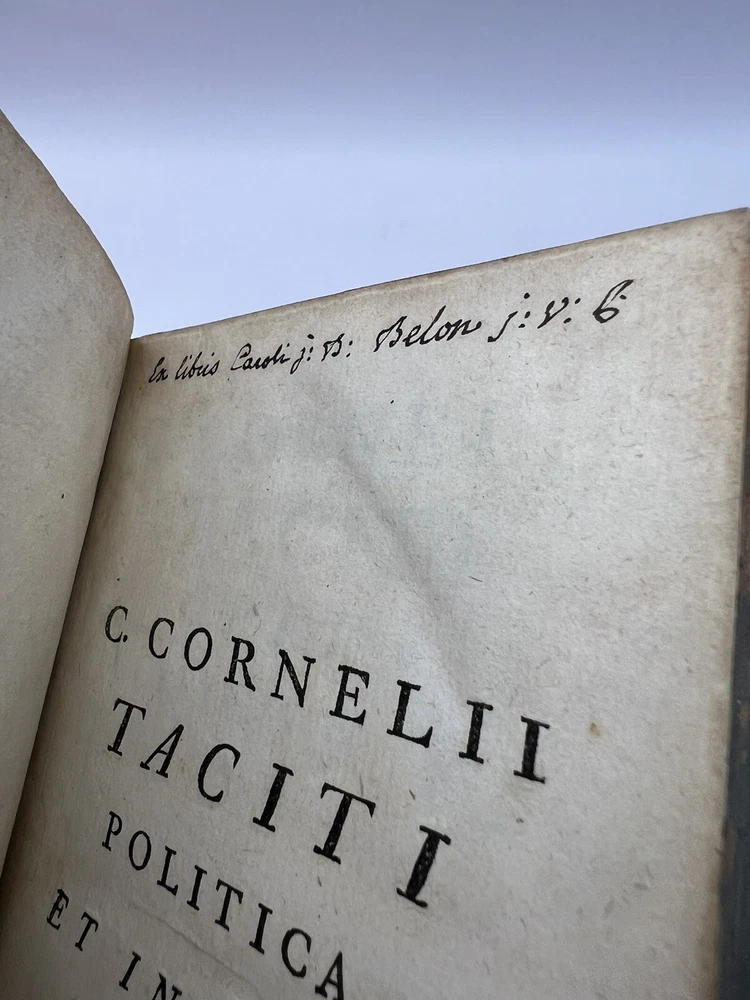 Ex libris Caroli j: B: Belon j: v: b
C. CORNELII
TACITI
POLITICA
ET IN